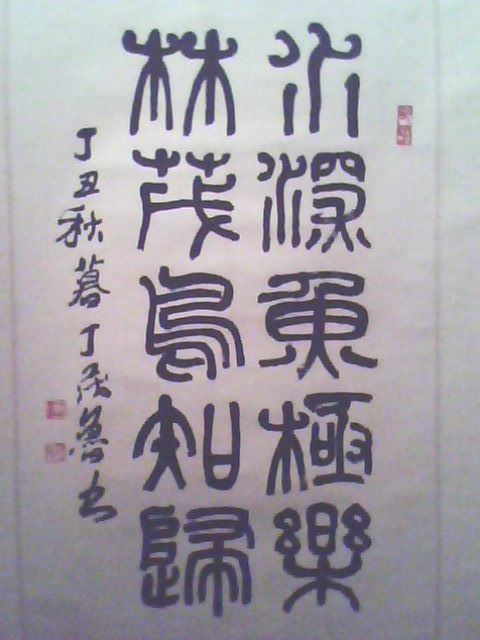 水深魚極樂
林茂鳥知歸
丁丑秋暮丁茂魯書